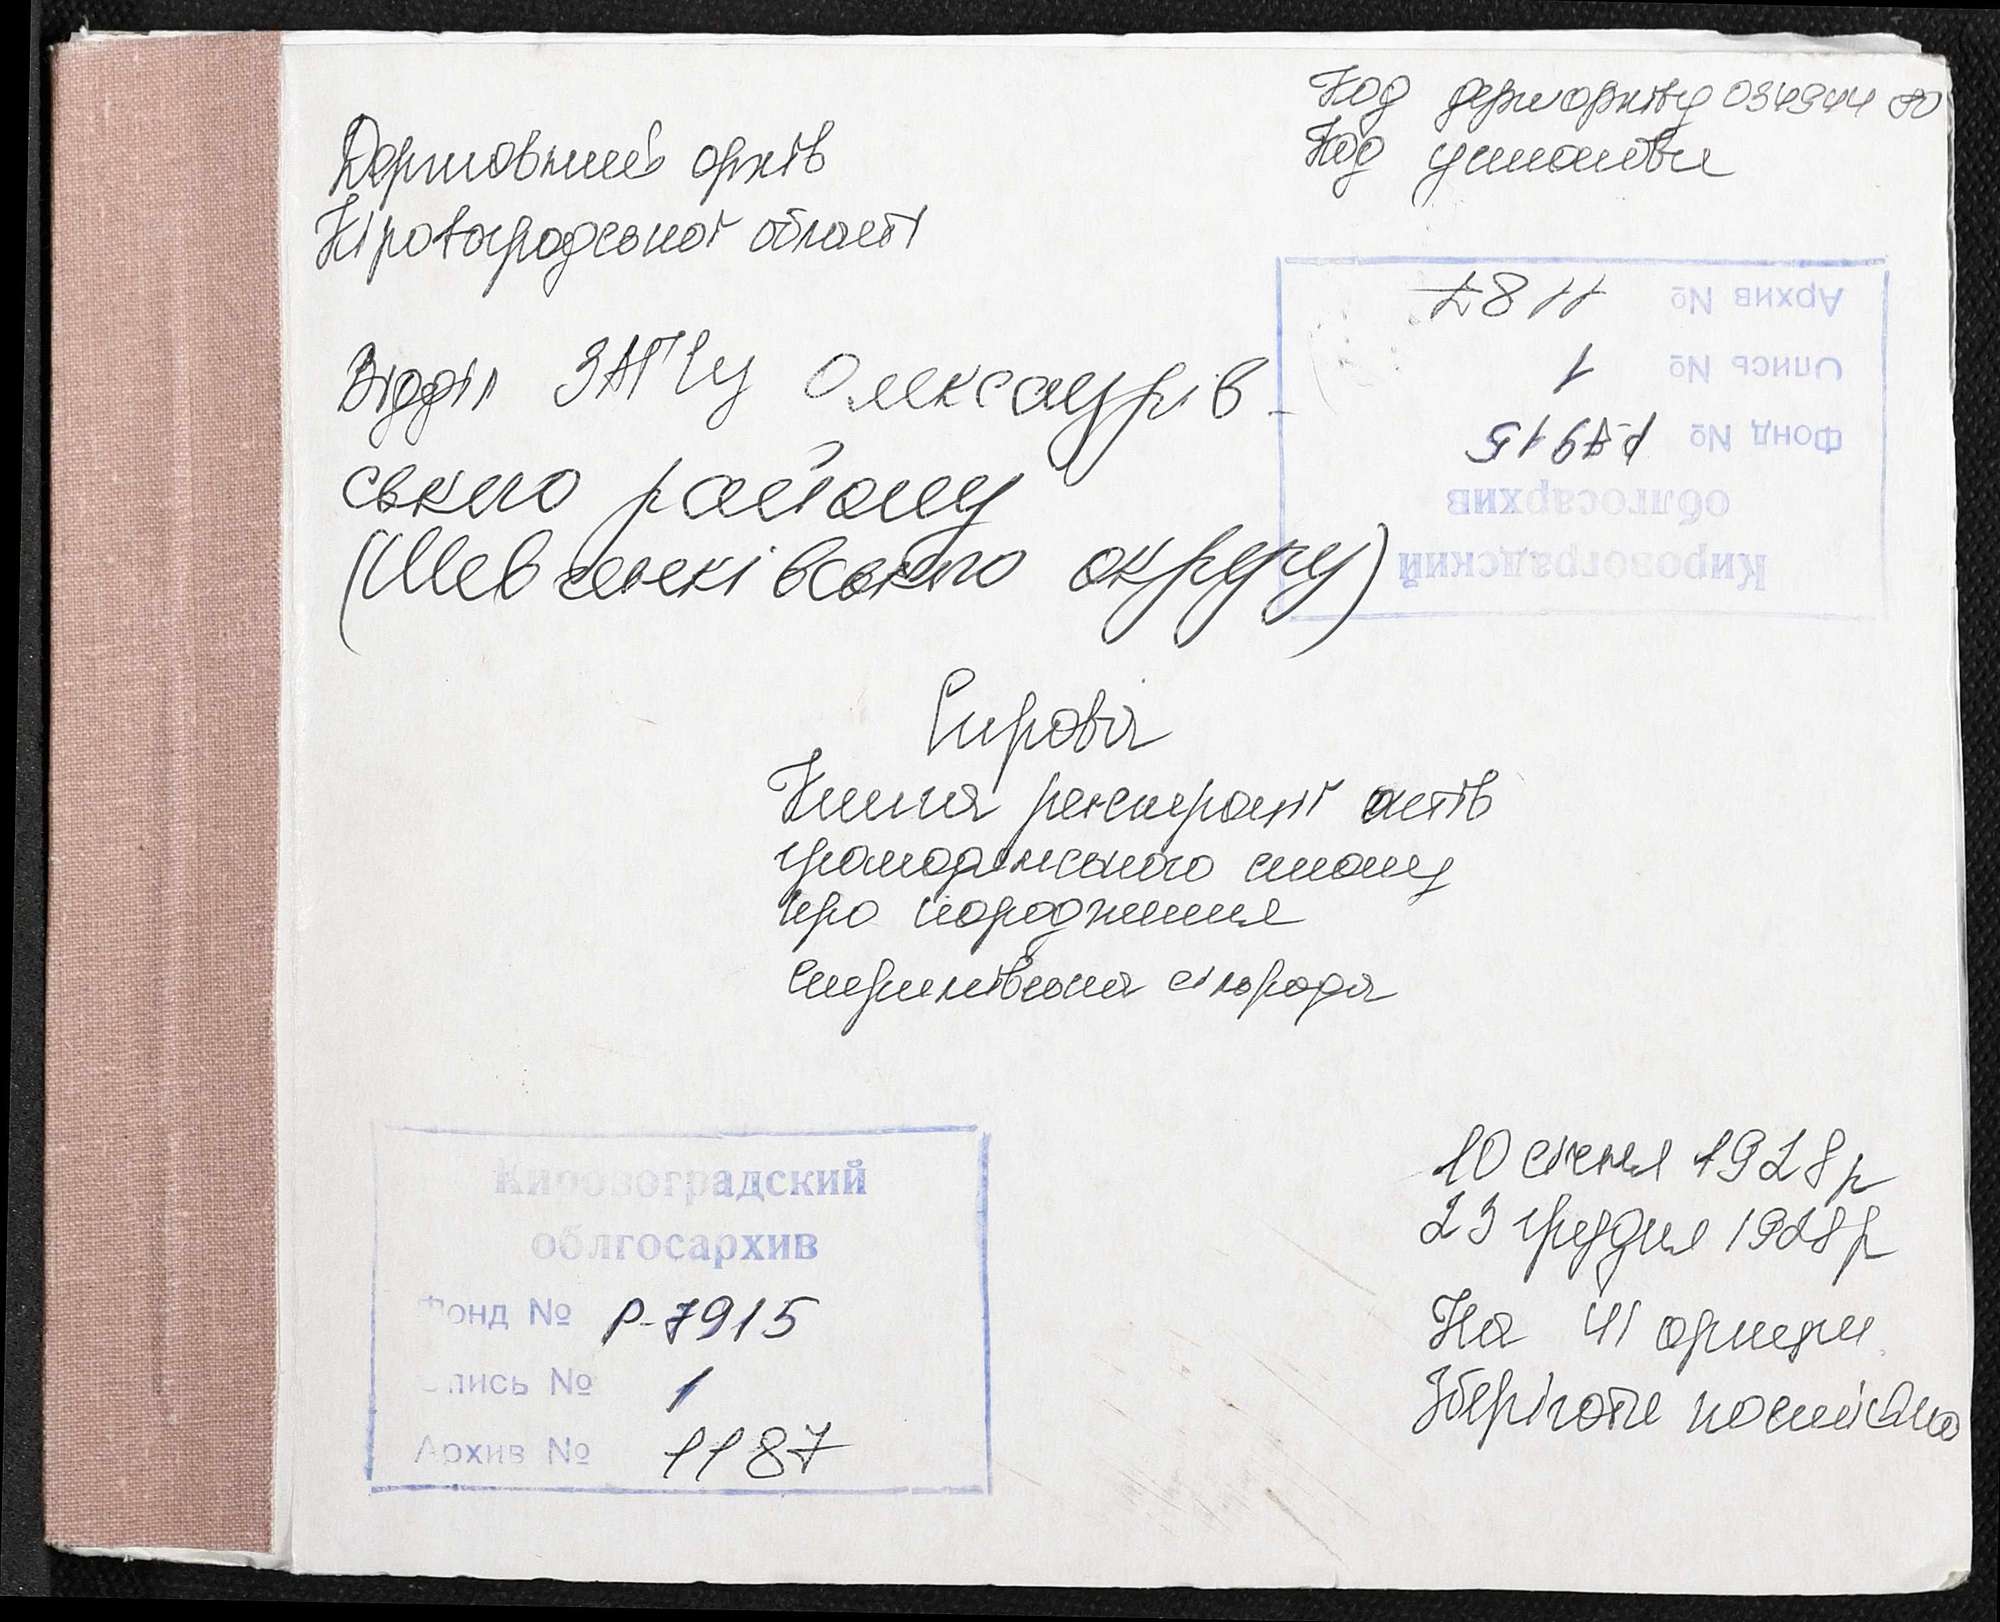 Код держархіву 03494480
Код установи
Державний архів
Кіровоградської області
Архив № 1187
Опись № 1
Фонд № Р-7915
облгосархив
Кировоградский
Відділ ЗАГСу Олександрів-
ського району
(Шевченківського округу)
Справа
Книга реєстрації актів
громадянського стану
про народження
сільрада
Кировоградский
облгосархив
Фонд № Р-7915
Опись № 1
Архив № 1187
10 січня 1928 р
23 грудня 1928 р
На 41 аркуші
Зберігати постійно